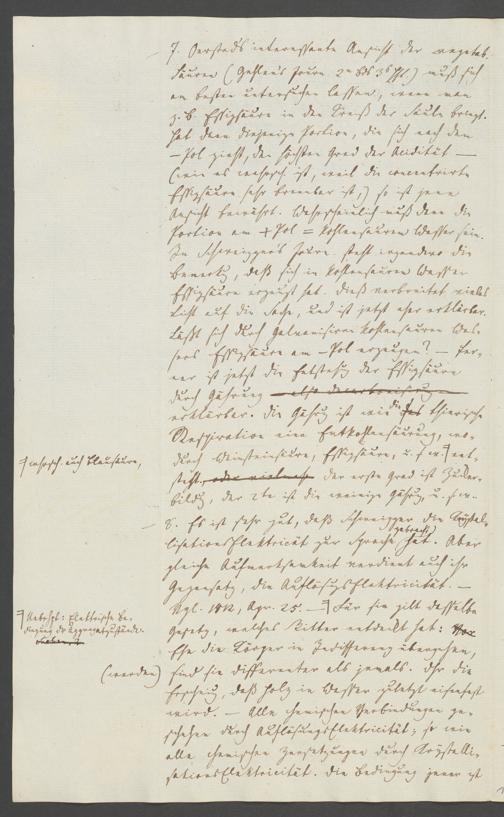 7. Oersted's interessante Ansicht der vegetab.
Säuren (Gehlens Journ. 2n Bds 3s Hft.) muß sich
am besten untersuchen lassen, wenn man
z. B. Essigsäure in den Kreis der Säule bringt.
Hat dann diejenige Portion, die sich nach dem
– Pol zieht, den höchsten Grad der Acidität —
(wie es wahrsch. ist, weil die concentrirte
Essigsäure sehr brennbar ist,) so ist jene
Ansicht bewährt. Wahrscheinlich muß dann die
Portion am + Pol = kohlensaurem Wasser sein.
In Schweigger's Journ. steht irgendwo die
Bemerkg, daß sich in kohlensaurem Wasser
Essigsäure erzeugt hat. Dieß verbreitet vieles
Licht auf die Sache, und ist jetzt eher erklärbar.
Läßt sich durch Galvanisiren kohlensauren Was-
sers Essigsäure am – Pol erzeugen? — Fer-
ner ist jetzt die Entstehg der Essigsäure
durch Gährung
erklärbar. Die Gährg ist wie die thierische
Respiration eine Entkohlensäurung, wo-
durch Weinsteinsäure, Essigsäure, u.s.w. ent-
steht, der erste Grad ist Zucker-
bildg, der 2te ist die weinige Gährg, u.s.w.
wahrsch. auch Blausäure,
8. Es ist sehr gut, daß Schweigger die Krystal-
lisationsElektricität zur Sprache gebracht hat. Aber
gleiche Aufmerksamkeit verdient auch ihr
Gegensatz, die AuflösungsElektricität. —
Vgl. 1812, Apr. 25. — Für sie gilt dasselbe
Gesetz, welches Ritter entdeckt hat:
Ehe die Körper in Indifferenz übergehen,
(werden) sind sie differenter als jemals. Dhr die
Erscheing, daß Holz in Wasser zuletzt
wird. — Alle chemischen Verbindungen ge-
schehen durch AuflösungsElektricität; so wie
alle chemischen Zersetzungen durch Krystalli-
sationsElektricität. Die Bedingung jener ist
Ueberhpt: Elektrische Be-
dingung der Aggregatzustände.